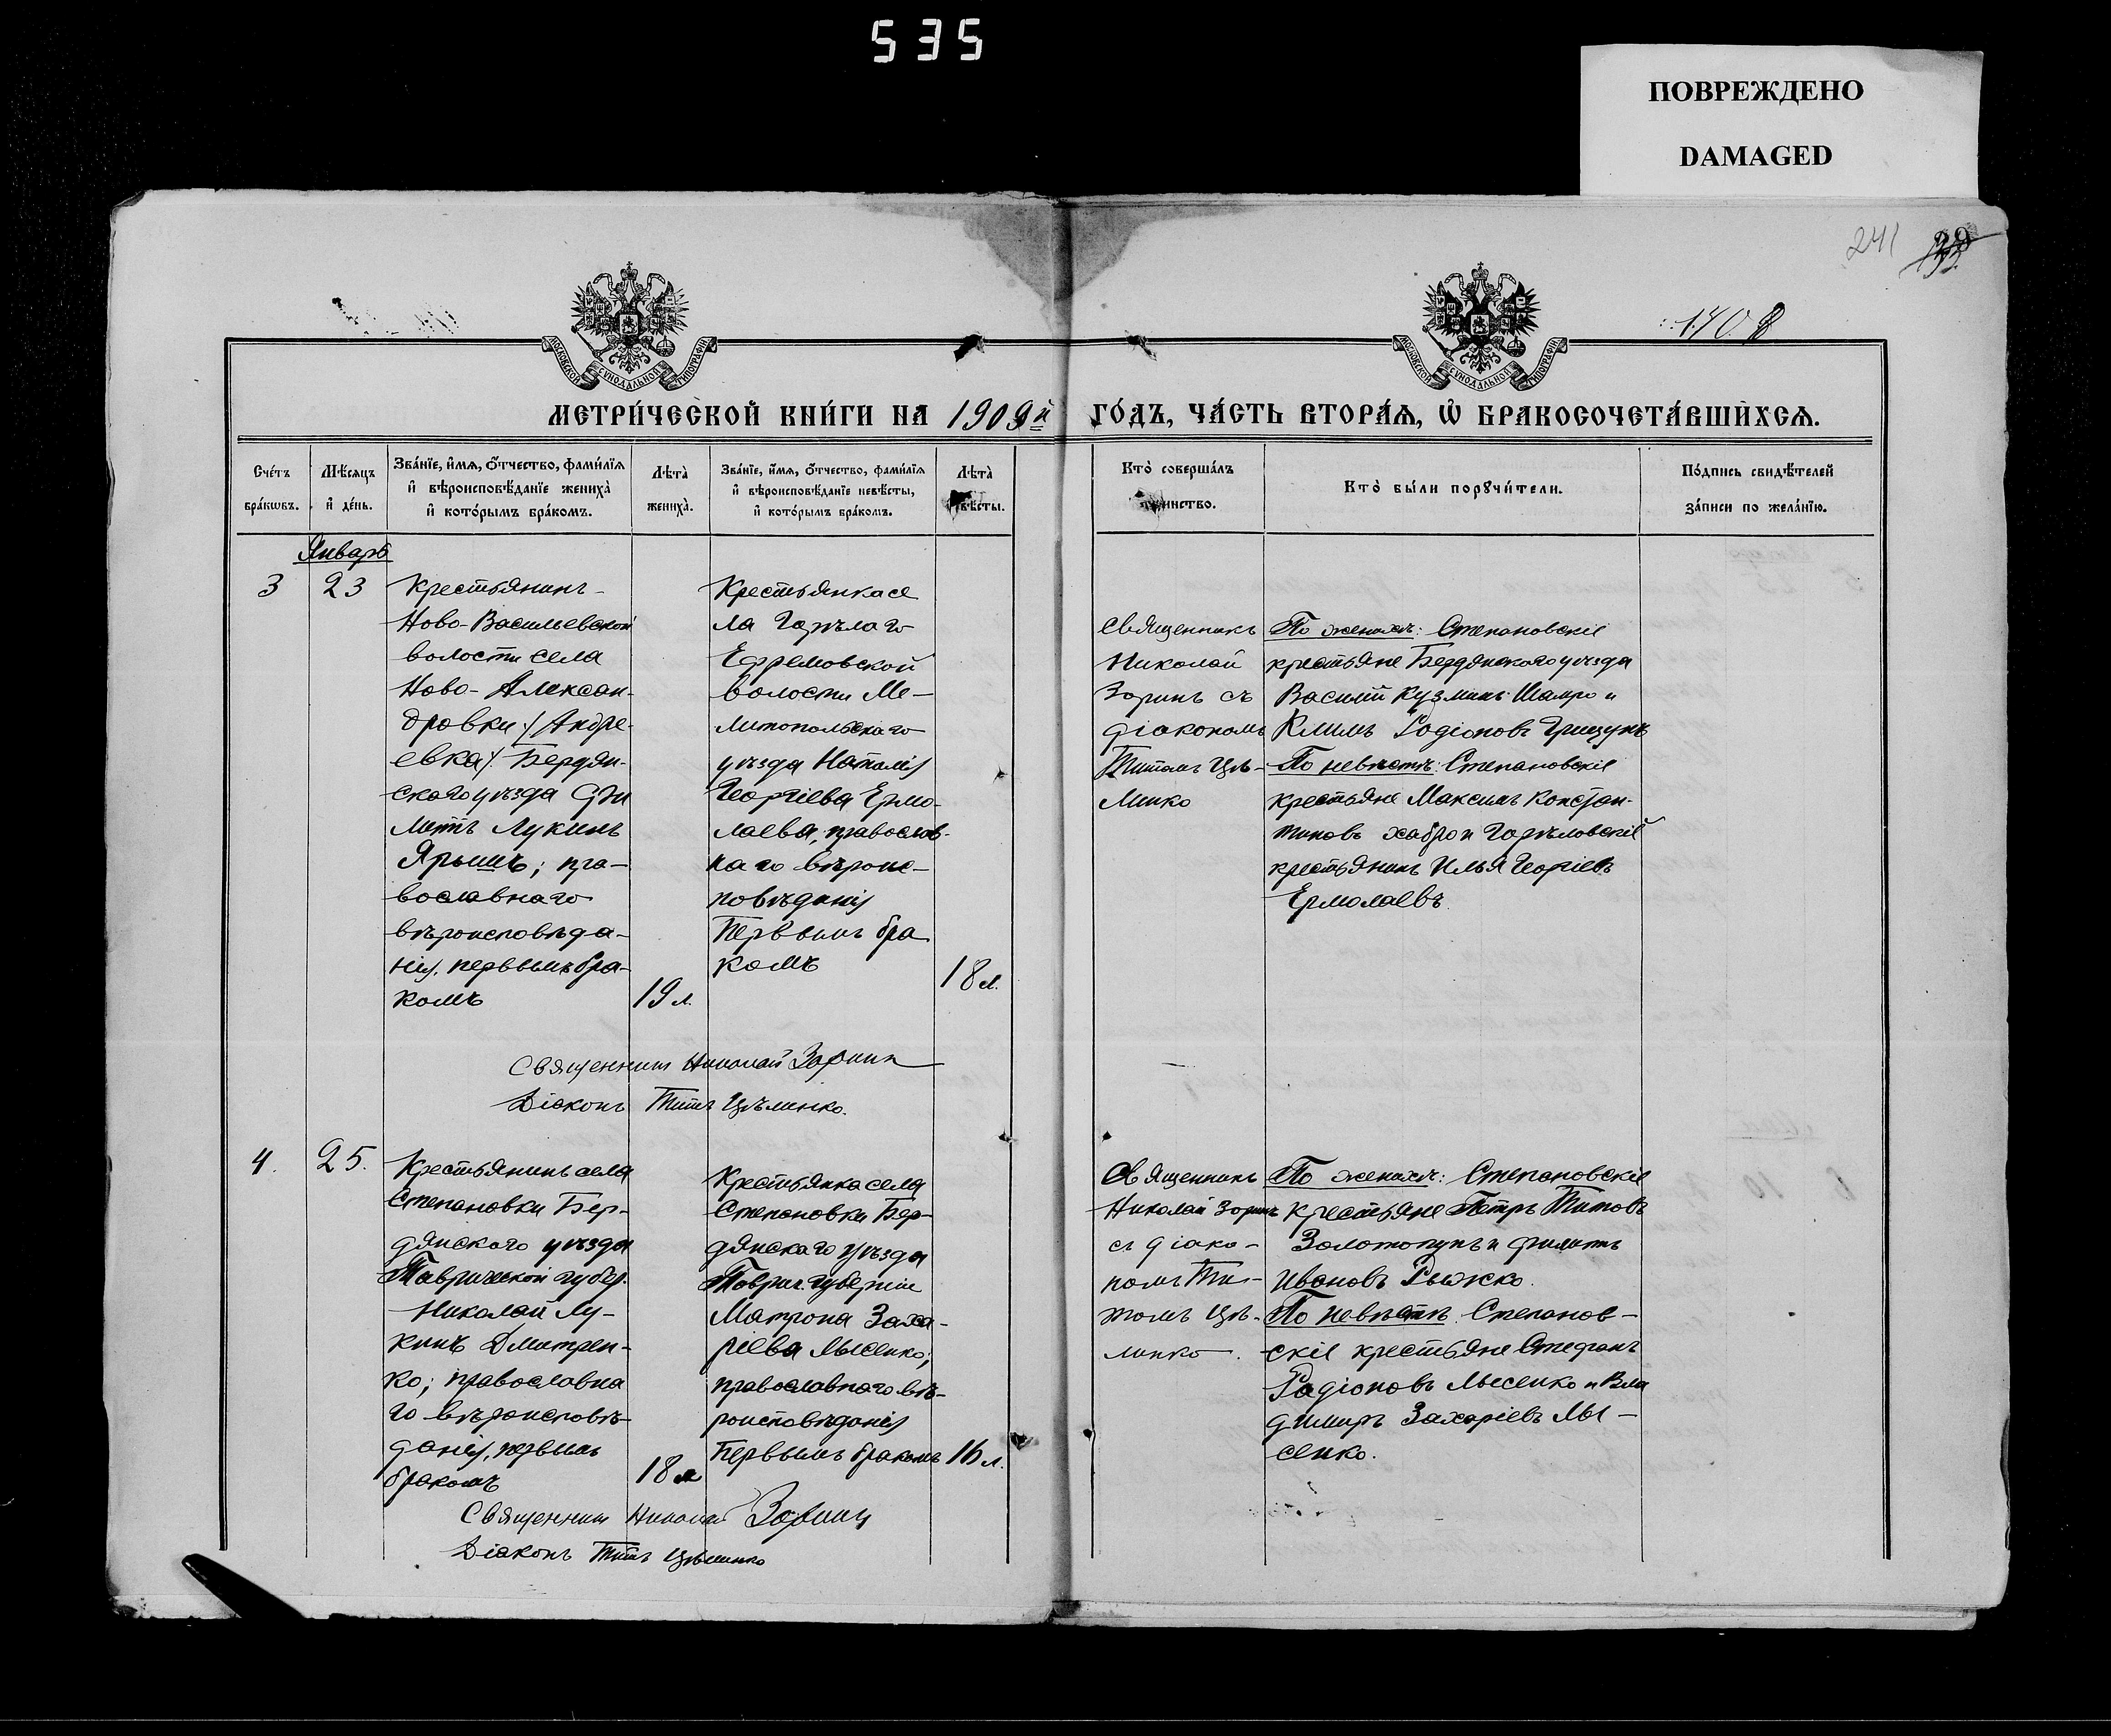 535
ПОВРЕЖДЕНО
DAMAGED
241
МОСКОВСКОЙ СУНОДАЛЬНОЙ ТИПОГРАФІИ
МОСКОВСКОЙ СУНОДАЛЬНОЙ ТИПОГРАФІИ
МЕТРИ́ЧЕСКОЙ КНИ́ГИ НА 1909й ГО́ДЪ, ЧА́СТЬ ВТОРА́Ѧ, Ѽ БРАКОСОЧЕТА́ВШИХСѦ.
Сче́тъ
бра́кѡвъ.
Мѣ́сѧцъ
и҆ де́нь.
Зва́нїе, и҆́мѧ, ѻ҆́тчество, фами́лїѧ
и҆ вѣроисповѣ́данїе жениха̀
и҆ кото́рымъ бра́комъ.
Лѣта̀
жениха̀.
Зва́нїе, и҆́мѧ, ѻ҆́тчество, фами́лїѧ
и҆ вѣроисповѣ́данїе невѣ́сты,
и҆ кото́рымъ бра́комъ.
Лѣта̀
невѣ́сты.
Кто̀ соверша́лъ
таинство.
Кто̀ бы́ли порꙋчи́тели.
По́дпись свидѣ́телей
за́писи по жела́нїю.
Январь
3
23
Крестьянинъ
Ново-Васильевской
волости села
Ново-Алексан-
дровки /Андре-
евка/ Бердян-
скаго уѣзда
Лукинъ
Ярышъ; пра-
вославнаго
вѣроисповѣда-
нія, первымъ бра-
комъ
19 л.
Крестьянка се
ла Горѣлаго
Ефремовской
волости Ме-
литопольскаго
уѣзда Наталія
Георгіева Ермо-
лаева, православ-
наго вѣроис-
повѣданія
Первымъ бра
комъ
18 л.
Священникъ
Николай
Зоринъ съ
діакономъ
Титомъ Цѣ-
линко
По женихѣ: Степановскіе
крестьяне Бердянскаго уѣзда
Василій Кузминъ Шапро и
Климъ Родіоновъ Грицунъ
По невѣстѣ: Степановскіе
крестьяне Максимъ Констан-
тиновъ Хабро и Горѣловскій
крестьянинъ Илья Георгіевъ
Ермолаевъ
Священникъ Николай Зоринъ
Діаконъ Титъ Цѣлинко.
4.
25.
Крестьянинъ села
Степановки Бер-
дянскаго уѣзда
Таврической губер.
Николай Лу-
кинъ Дмитрен-
ко; православна
го вѣроисповѣ-
данія, первымъ
бракомъ
18 л
Крестьянка села
Степановки Бер-
дянскаго уѣзда
Таврич. губерніи
Матрона Заха-
ріева Лысенко;
православнаго вѣ-
роисповѣданія
Первымъ бракомъ
16 л.
Священникъ
Николай Зоринъ
съ діако-
номъ Ти-
томъ Цѣ-
линко.
По женихѣ: Степановскіе
крестьяне Петръ Титовъ
Золотопупъ и Филиппъ
Ивановъ Рыжко.
По невѣстѣ Степанов-
скіе крестьяне Стефанъ
Радіоновъ Лысенко и Вла
димиръ Захаріевъ Лы-
сенко.
Священникъ Николай Зоринъ
Діаконъ Титъ Цѣлинко